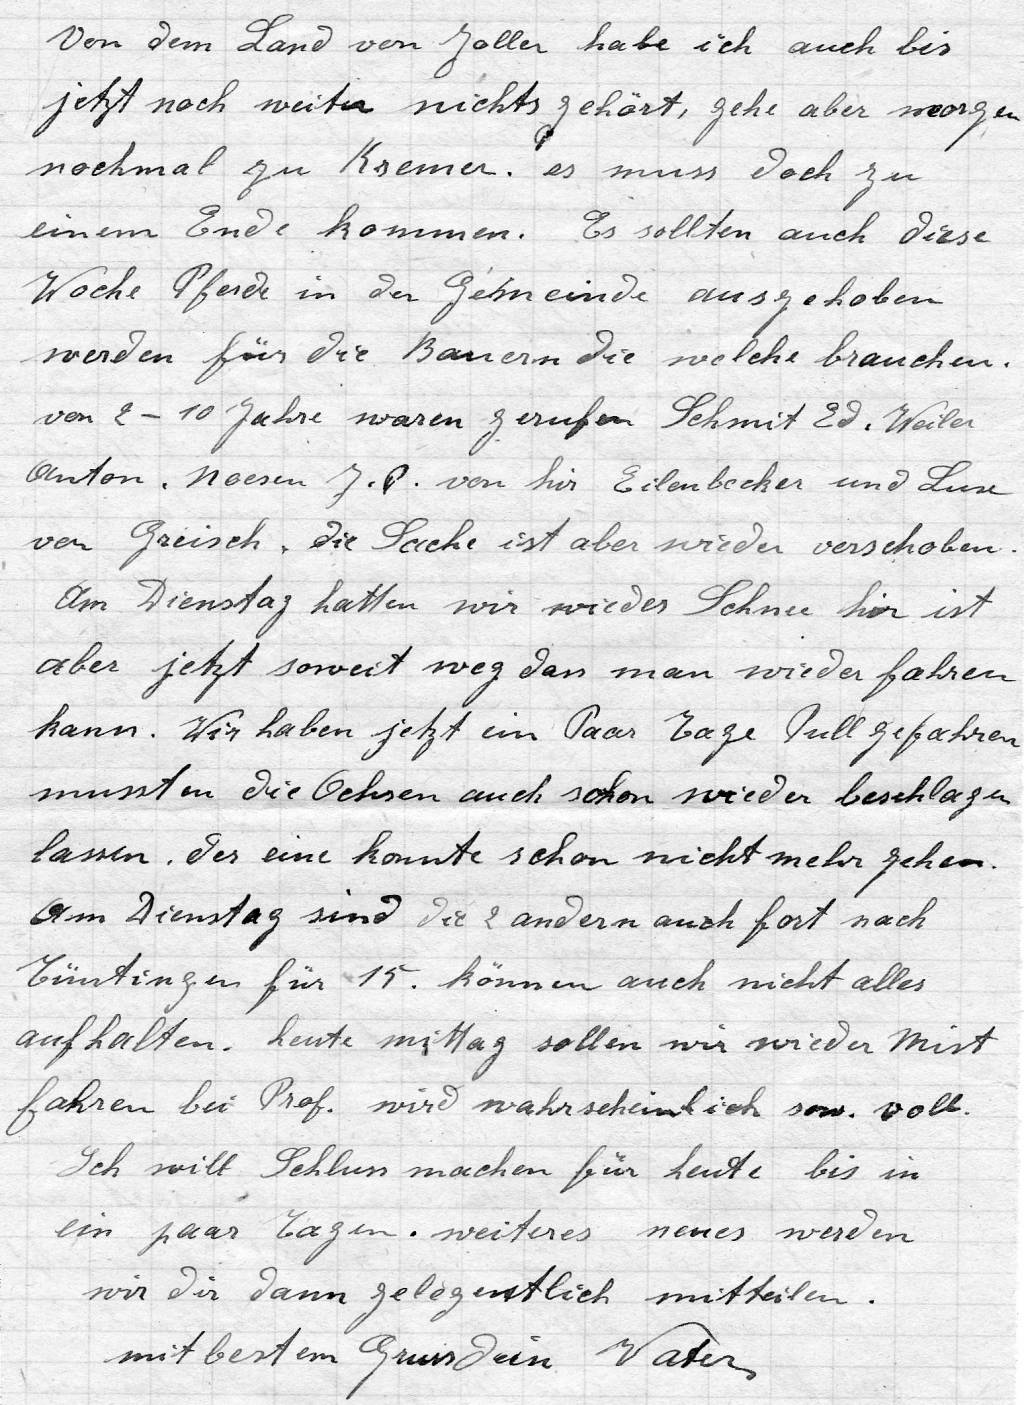 Von dem Land von Zoller habe ich auch bis
jetzt noch weiter nichts gehört, gehe aber morgen
nochmal zu Kremer. es muss doch zu
einem Ende kommen. Es sollten auch diese
Woche Pferde in der Gemeinde ausgehoben
werden für die Bauern die welche brauchen.
von 2 – 10 Jahre waren gerufen Schmit Ed. Weiler
Anton. Noesen J.P. von hir Eilenbecker und Lux
von Greisch. die Sache ist aber wieder verschoben.
Am Dienstag hatten wir wieder Schnee hir ist
aber jetzt soweit weg das man wieder fahren
kann. Wir haben jetzt ein Paar Tage Pull gefahren
mussten die Ochsen auch schon wieder beschlagen
lassen. der eine konnte schon nicht mehr gehen.
Am Dienstag sind die 2 andern auch fort nach
Tüntingen für 15. können auch nicht alles
aufhalten. heute mittag sollen wir wieder Mist
fahren bei Prof. wird wahrscheinlich sow. voll.
Ich will Schluss machen für heute bis in
ein paar Tagen. weiteres neues werden
wir dir dann gelegentlich mitteilen.
mit bestem Gruss dein Vater